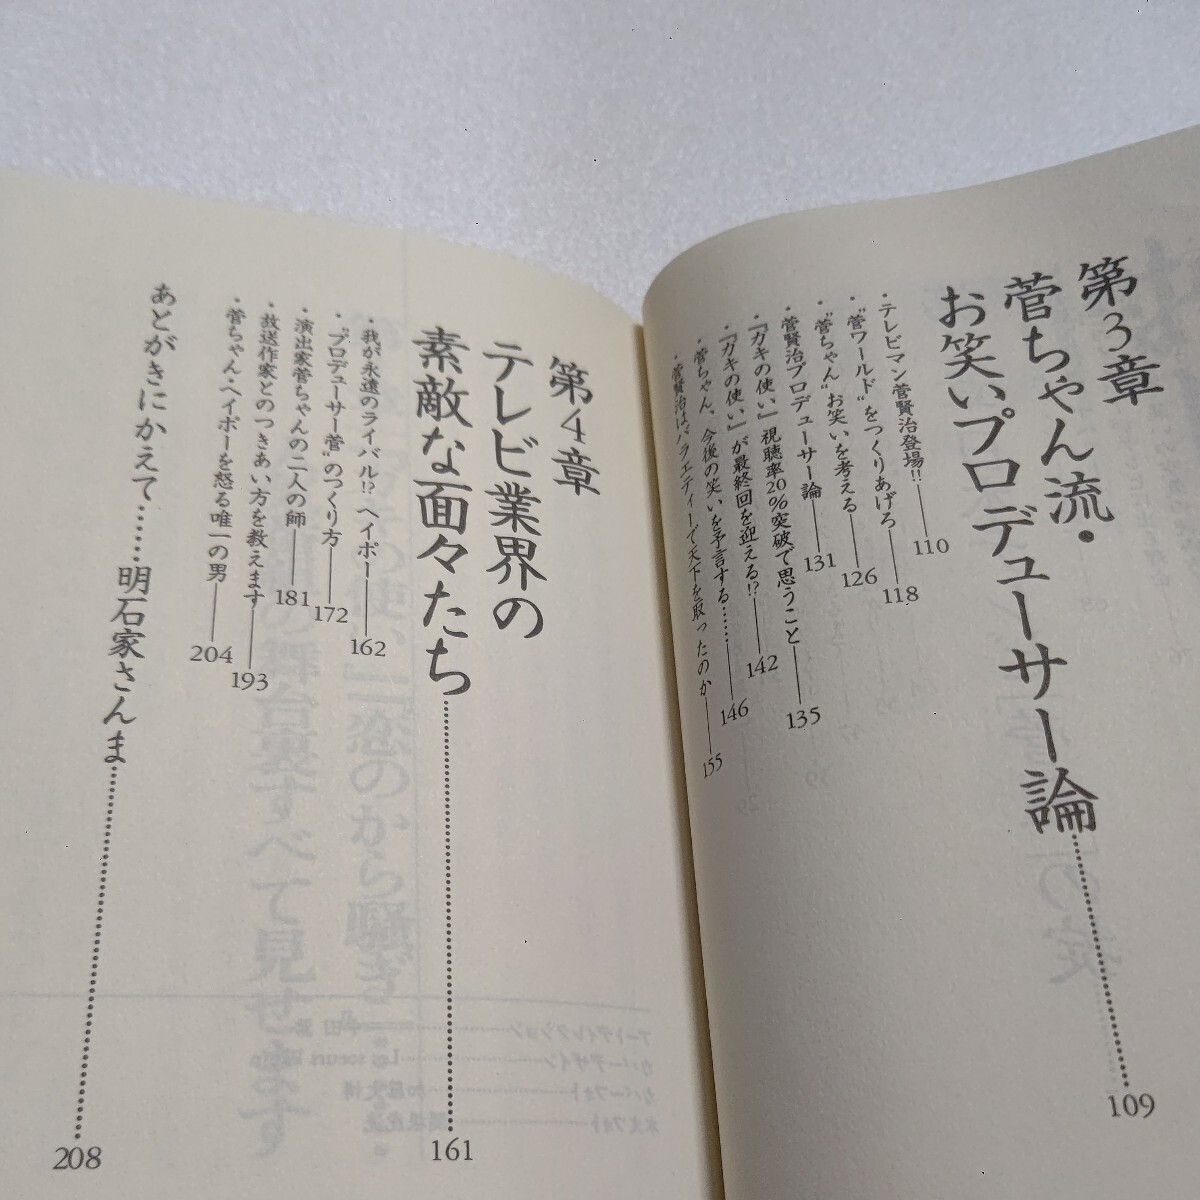 第3章
菅ちゃん流・
お笑いプロデューサー論……109
・テレビマン菅賢治登場!!——110
・“菅ワールド”をつくりあげろ——118
・“菅ちゃん”お笑いを考える——126
・菅賢治プロデューサー論——131
・『ガキの使い』視聴率20%突破で思うこと——135
・『ガキの使い』が最終回を迎える!?——142
・菅ちゃん、今後の笑いを予言する……——146
・菅賢治はバラエティーで天下を取ったのか——155
第4章
テレビ業界の
素敵な面々たち……161
・我が永遠のライバル!?ヘイポー——162
・“プロデューサー菅”のつくり方——172
・演出家菅ちゃんの二人の師——181
・放送作家とのつきあい方を教えます——193
・菅ちゃん・ヘイポーを怒る唯一の男——204
あとがきにかえて……明石家さんま……208